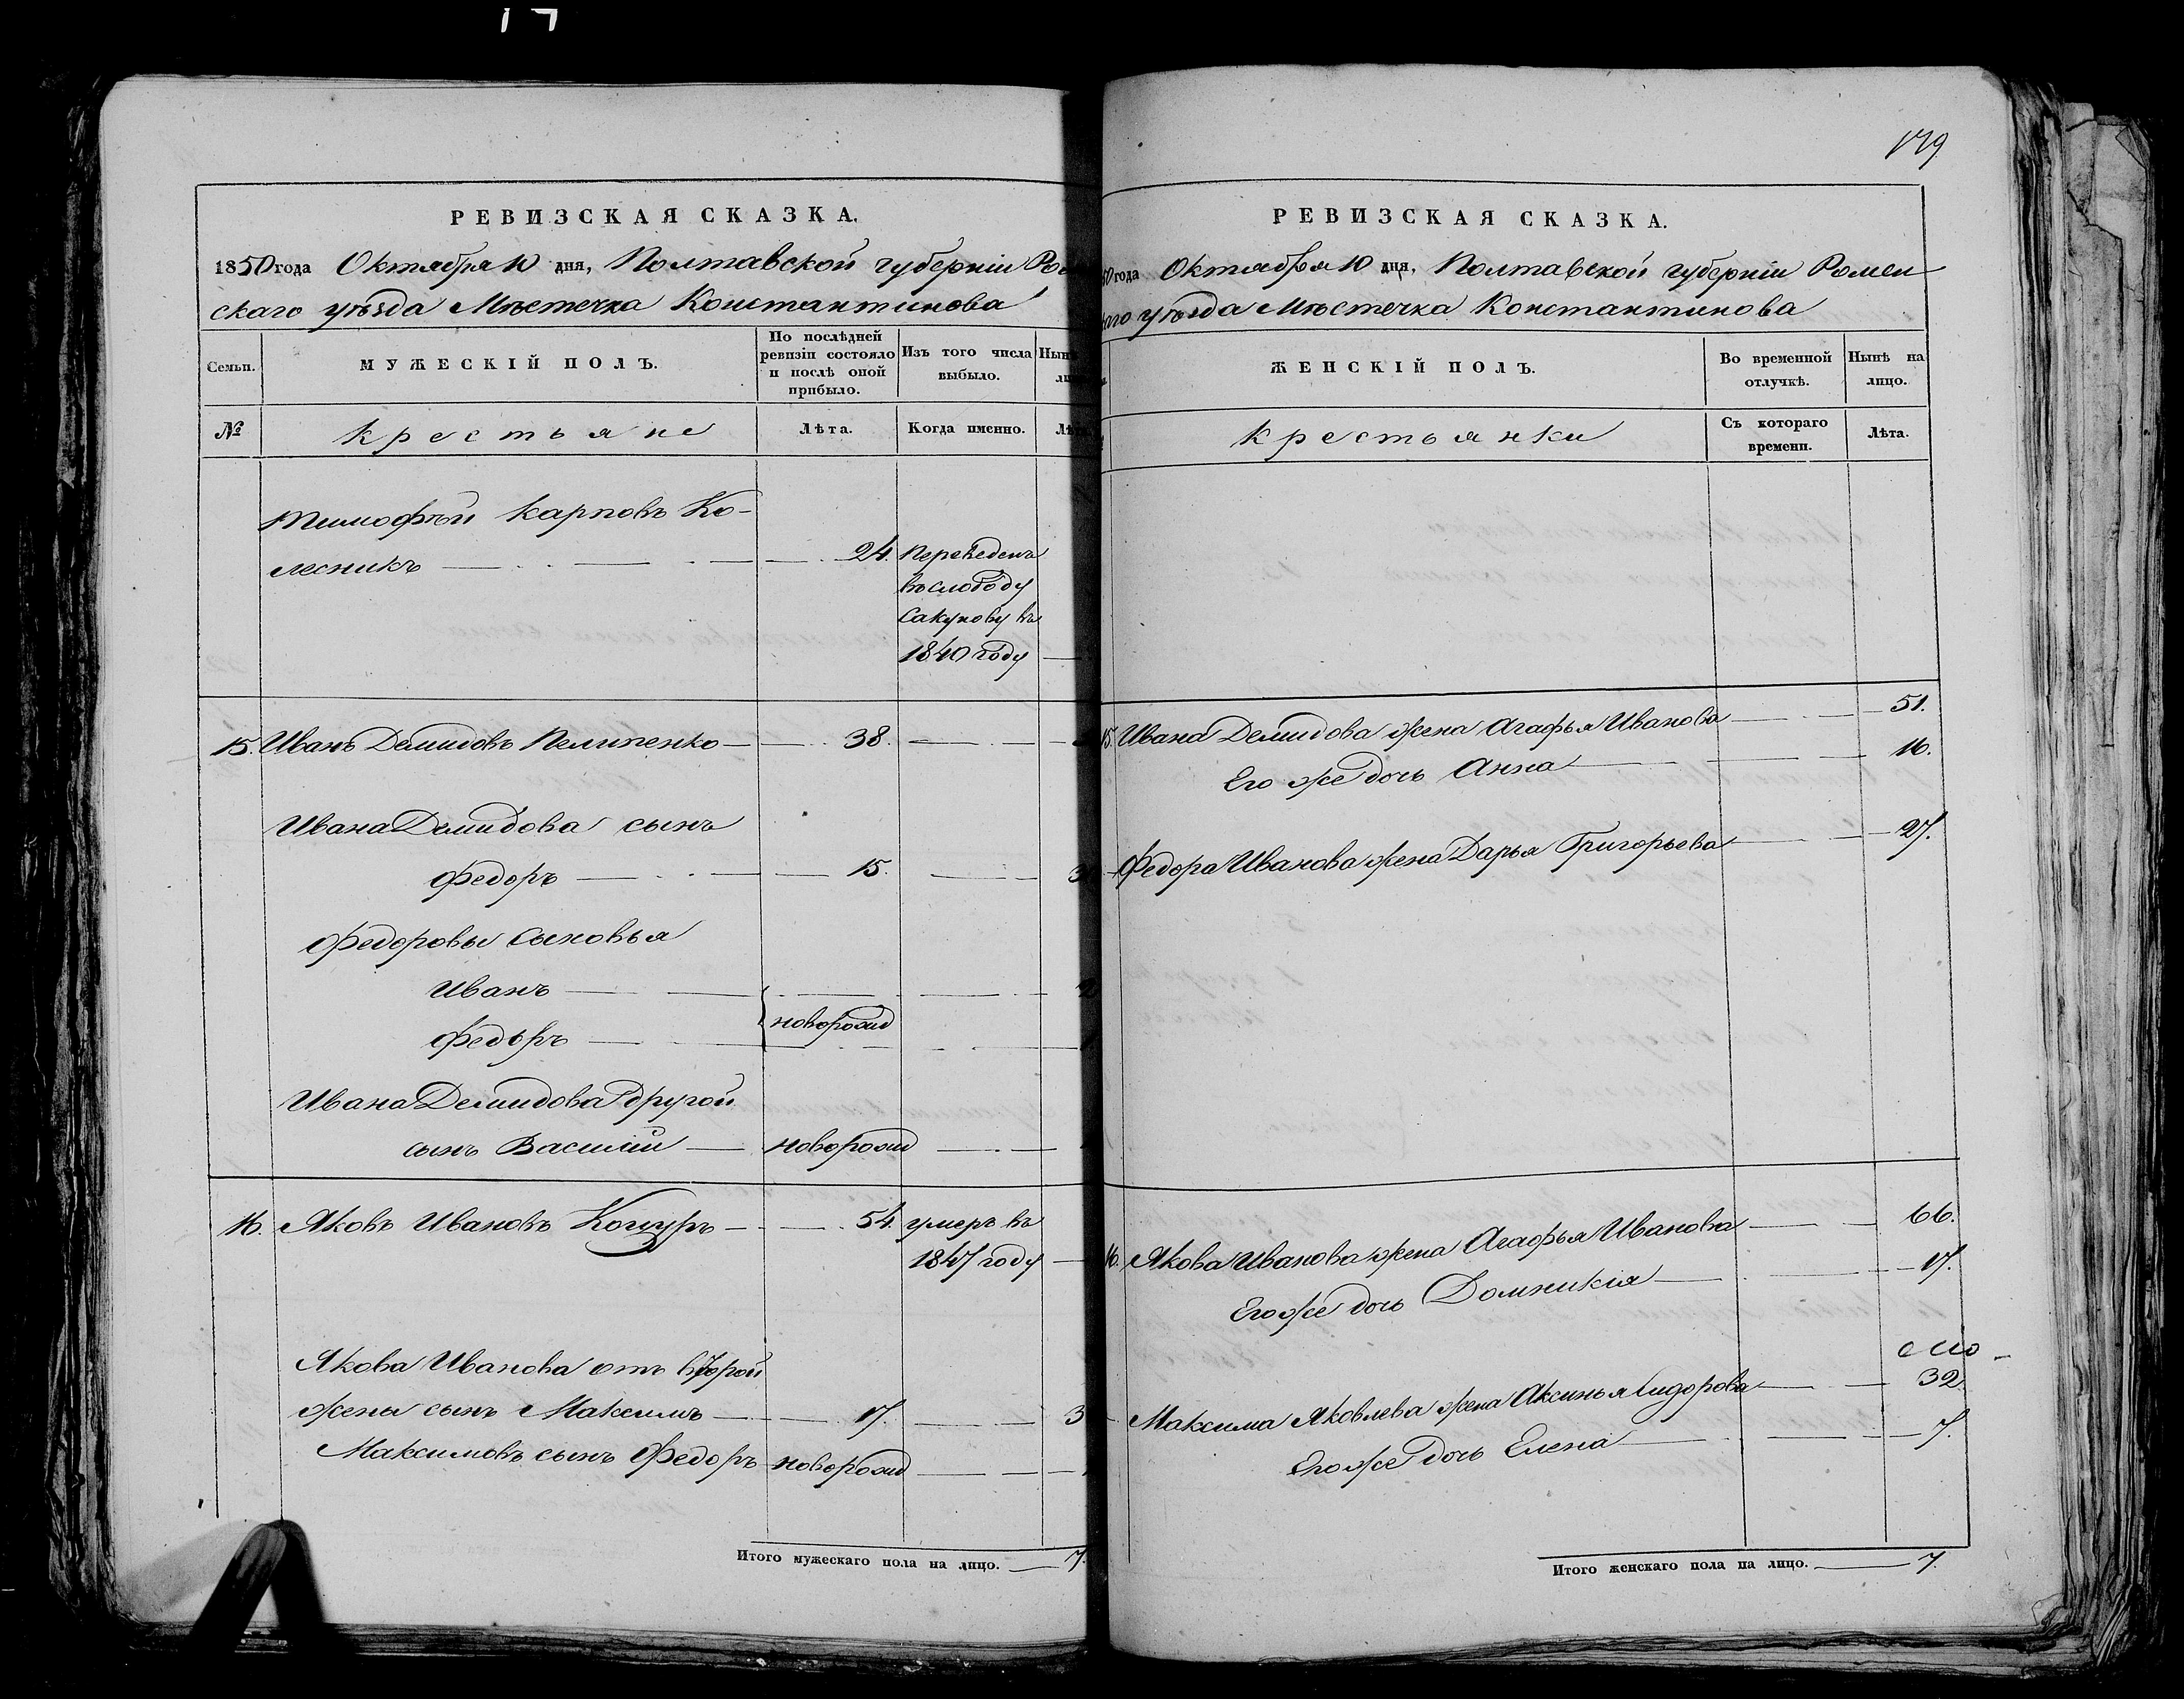 РЕВИЗСКАЯ СКАЗКА.
1850 года Октября 10 дня, Полтавской губерніи Ро
скаго уѣзда Мѣстечка Константинова
Семьи.
МУЖЕСКІЙ ПОЛЪ.
По послѣдней
ревизіи состояло
и послѣ оной
прибыло.
Изъ того числа
выбыло.
№
Крестьяне
Лѣта.
Когда именно.
Тимофѣй Карповъ Ко-
лесникъ 24. Переведенъ
въ слободу
Сакунову въ
1840 году
15. Иванъ Демидовъ Пелипенко 38.
Ивана Демидова сынъ
Федоръ 15.
Федоровы Сыновья
Иванъ
новорожд
Федоръ
Ивана Демидова другой
сынъ Василій новорожд
16. Яковъ Ивановъ 54. умеръ въ
1847 году
Якова Иванова отъ второй
жены сынъ Максимъ 17. 3
Максимовъ сынъ Федоръ новорожд
Итого мужескаго пола на лицо. 7.
179
РЕВИЗСКАЯ СКАЗКА.
50 года Октября 10 дня, Полтавской губерніи Ромен
каго уѣзда Мѣстечка Константинова
ЖЕНСКІЙ ПОЛЪ.
Во временной
отлучкѣ.
Нынѣ на
лицо.
Крестьянки
Съ котораго
времени.
Лѣта.
15. Ивана Демидова жена Агафья Иванова 51.
Его же дочь Анна 16.
Федора Иванова жена Дарья Григорьева 27.
16. Якова Иванова жена Агафья Иванова 66.
Его же дочь Домникія 17.
Максима Яковлева жена Аксинья Сидорова 32.
Его же дочь Елена 7.
Итого женскаго пола на лицо. 7.